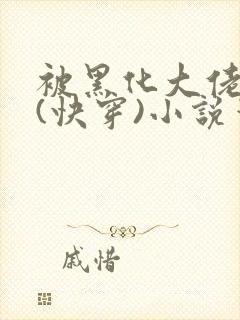 被黑化大佬
(快穿)小说
戚惜